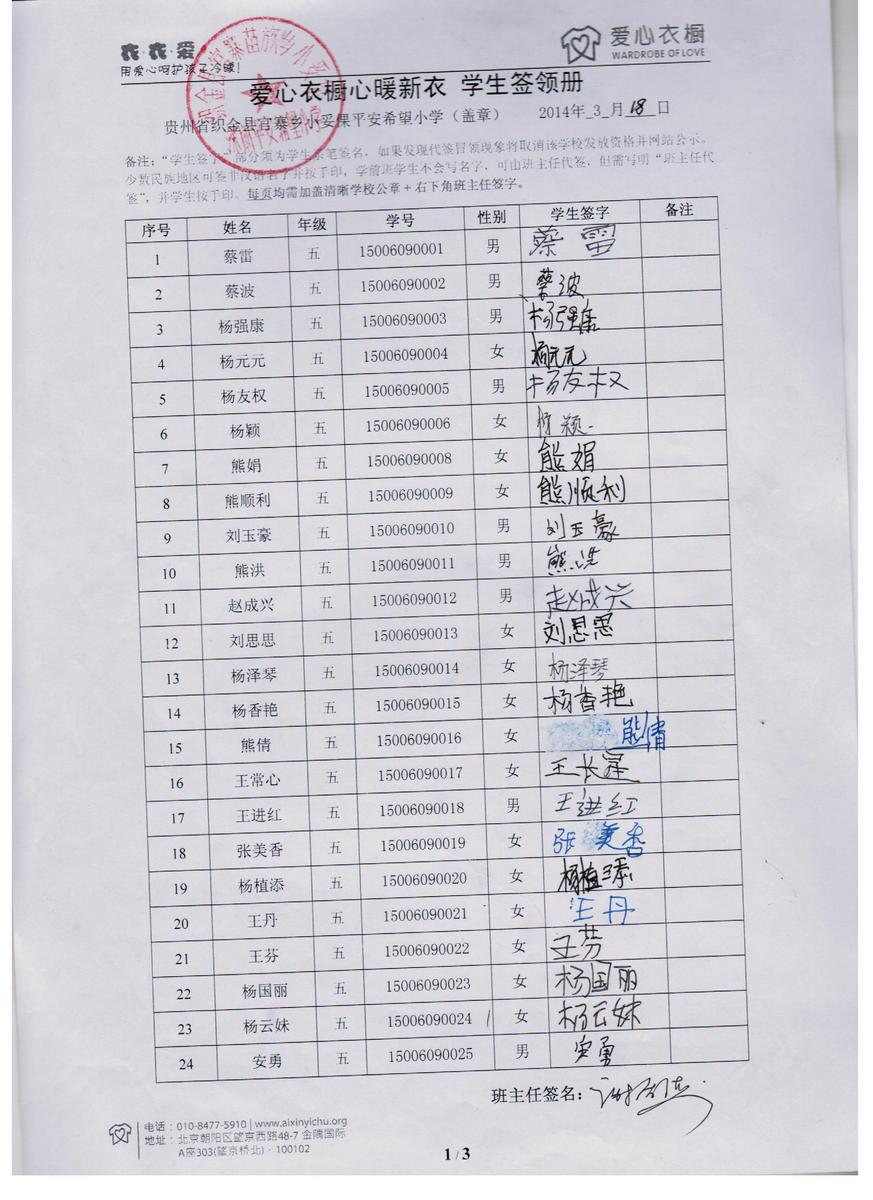 衣·衣·爱
用爱心呵护孩子冷暖!
爱心衣橱
WARDROBE OF LOVE
爱心衣橱心暖新衣 学生签领册
贵州省织金县官寨乡小妥倮平安希望小学（盖章） 2014年_3_月18日
备注：“学生签字”部分须为学生亲笔签名，如果发现代签冒领现象将取消该学校发放资格并网站公示。
少数民族地区可签非汉语名字并按手印，学前班学生不会写名字，可由班主任代签，但需写明“班主任代
签”，并学生按手印。每页均需加盖清晰学校公章+右下角班主任签字。
序号 姓名 年级 学号 性别 学生签字 备注
1 蔡雷 五 15006090001 男 蔡雷
2 蔡波 五 15006090002 男 蔡波
3 杨强康 五 15006090003 男 杨强康
4 杨元元 五 15006090004 女 杨元元
5 杨友权 五 15006090005 男 杨友权
6 杨颖 五 15006090006 女 杨颖
7 熊娟 五 15006090008 女 熊娟
8 熊顺利 五 15006090009 女 熊顺利
9 刘玉豪 五 15006090010 男 刘玉豪
10 熊洪 五 15006090011 男 熊洪
11 赵成兴 五 15006090012 男 赵成兴
12 刘思思 五 15006090013 女 刘思思
13 杨泽琴 五 15006090014 女 杨泽琴
14 杨香艳 五 15006090015 女 杨香艳
15 熊倩 五 15006090016 女 熊倩
16 王常心 五 15006090017 女 王长
17 王进红 五 15006090018 男 王进红
18 张美香 五 15006090019 女 张美香
19 杨植添 五 15006090020 女 杨植添
20 王丹 五 15006090021 女 王丹
21 王芬 五 15006090022 女 王芬
22 杨国丽 五 15006090023 女 杨国丽
23 杨云妹 五 15006090024 女 杨云妹
24 安勇 五 15006090025 男 安勇
班主任签名：
电话：010-8477-5910 | www.aixinyichu.org
地址：北京朝阳区望京西路48-7 金隅国际
A座303(望京桥北)·100102
1 / 3